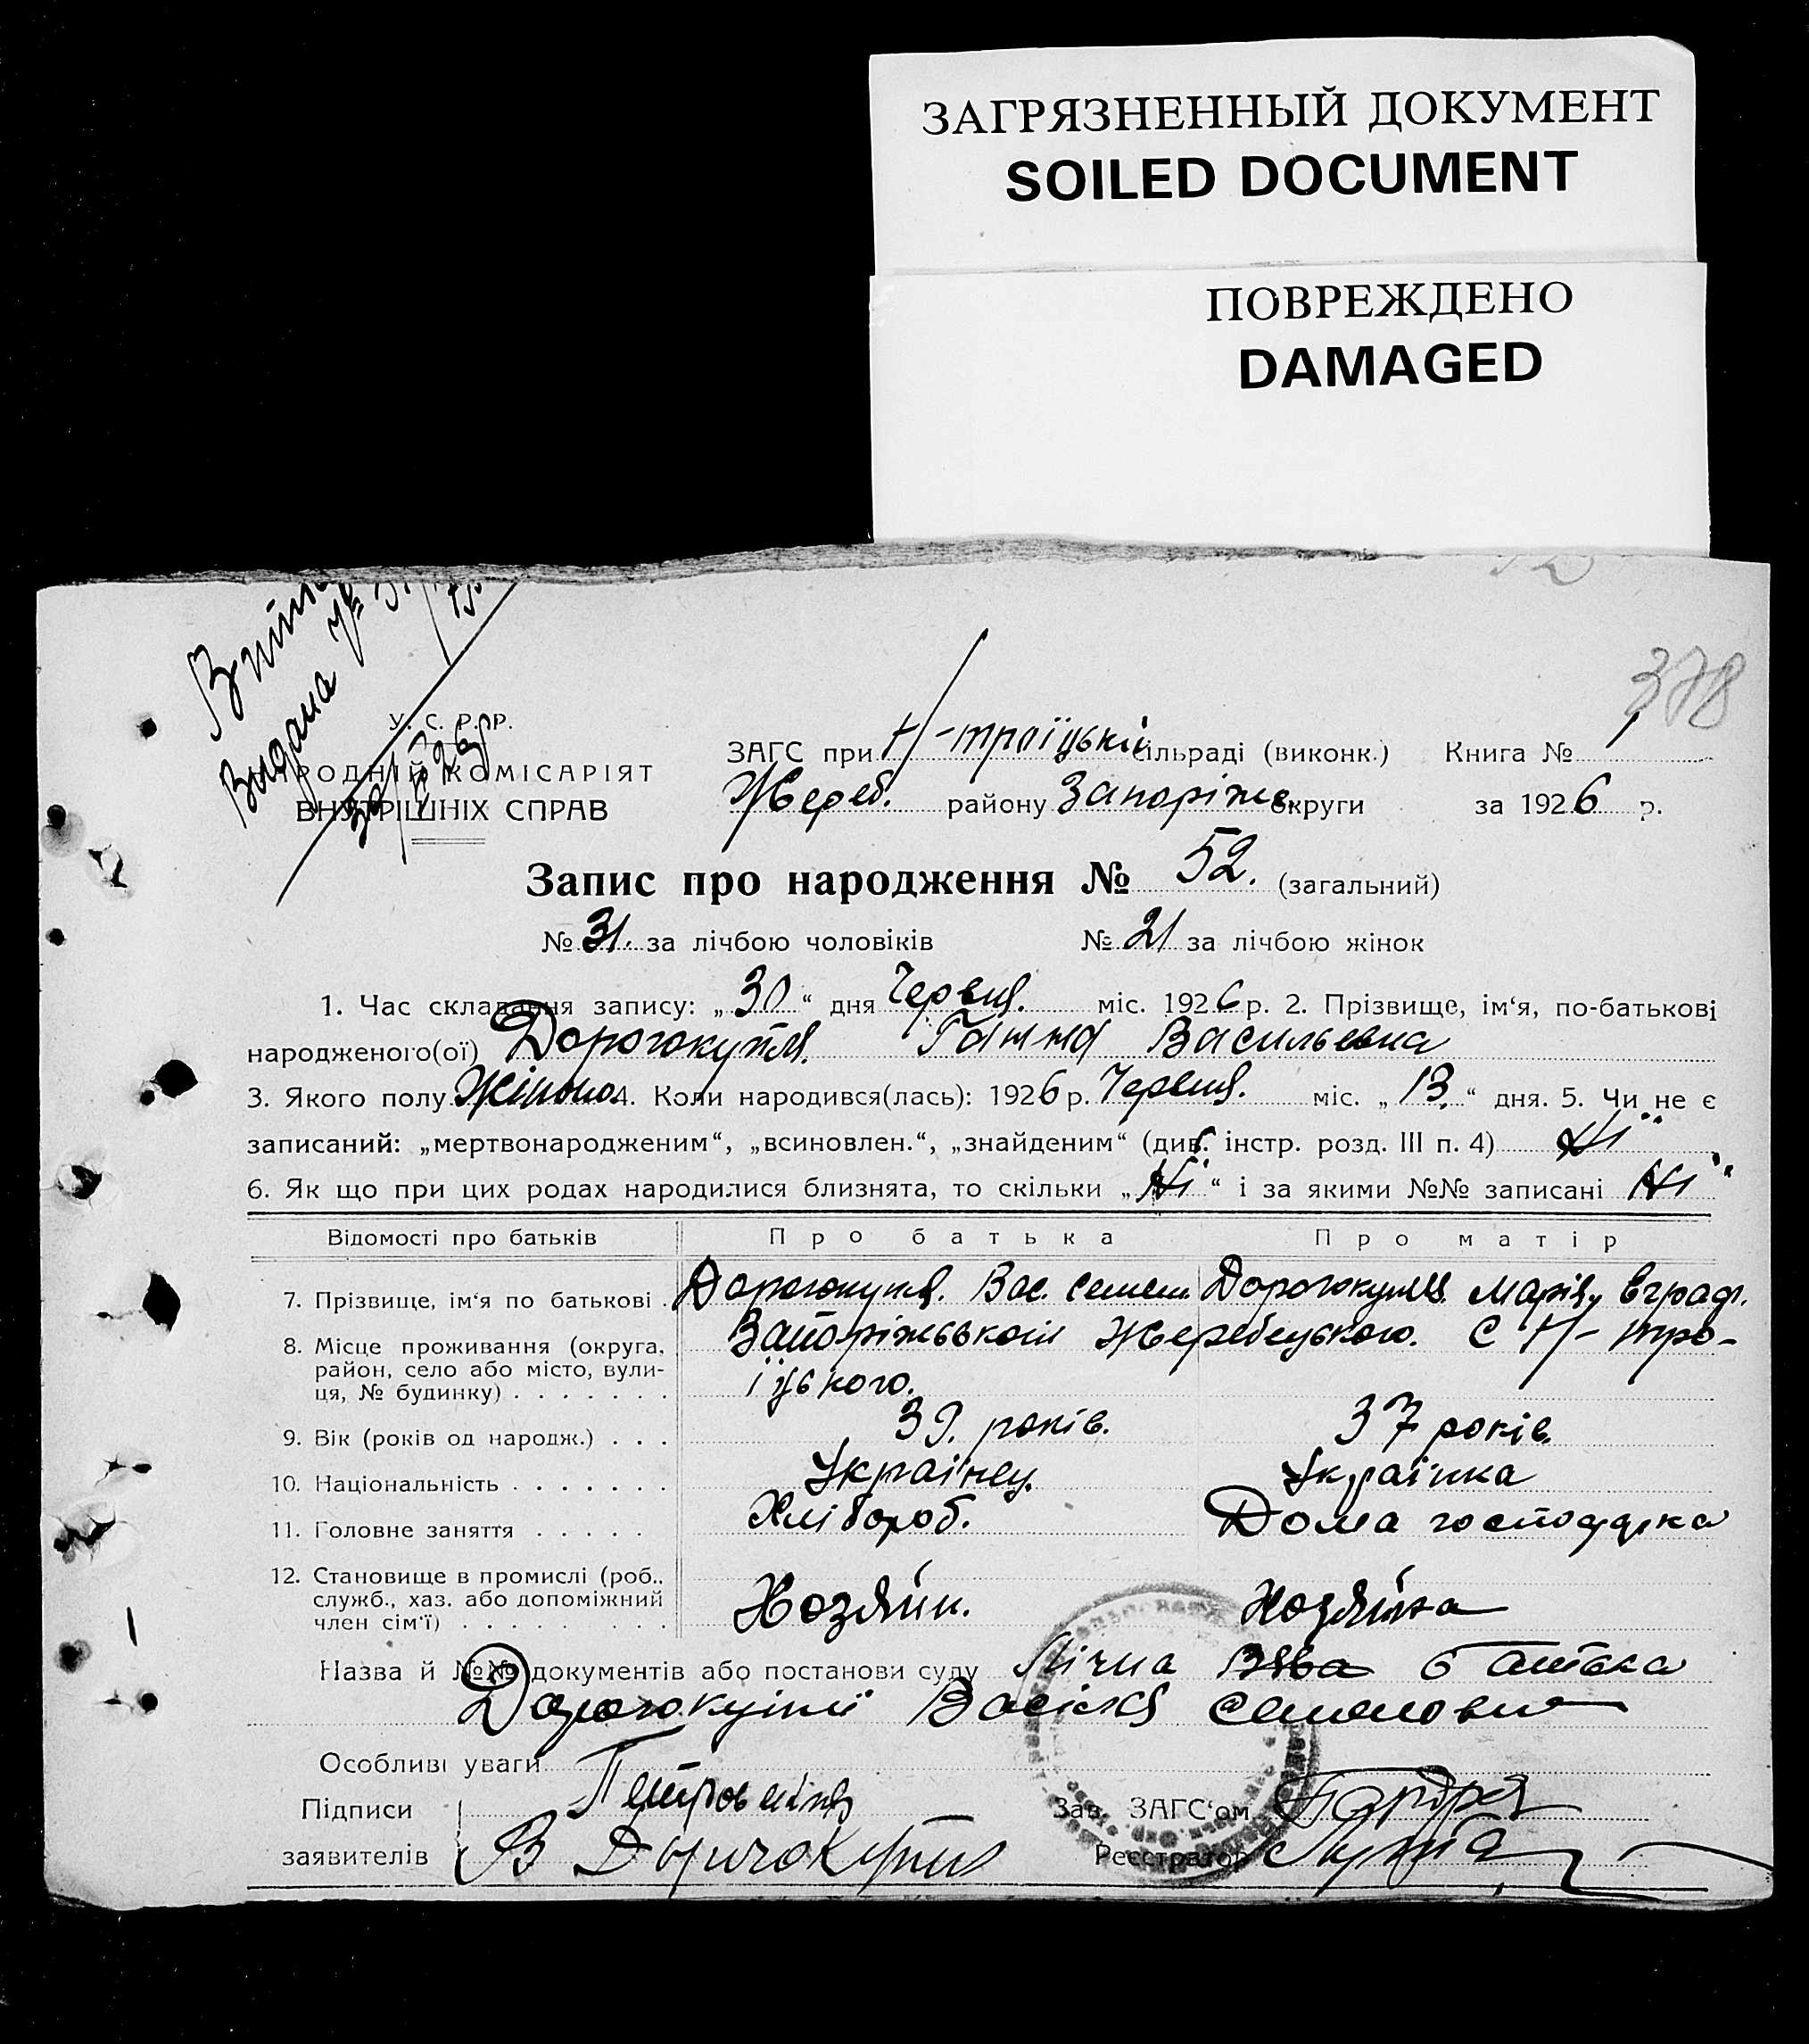 ЗАГРЯЗНЕННЫЙ ДОКУМЕНТ
SOILED DOCUMENT
ПОВРЕЖДЕНО
DAMAGED
52
378
Видана
У. С. Р. Р.
РОДНІЙ КОМІСАРІЯТ
ВНУТРІШНІХ СПРАВ
ЗАГС при Н-троїцькій сільраді (виконк.) Книга № 1
Жереб. району Запоріж. округи за 1926 р.
Запис про народження № 52. (загальний)
№ 31. за лічбою чоловіків № 21 за лічбою жінок
1. Час складання запису: „30“ дня Червця. міс. 1926 р. 2. Прізвище, ім‘я, по-батькові
народженого(ої) Дорогокупля. Ганна Васильевна
3. Якого полу Жіночо. 4. Коли народився(лась): 1926 р. Червця. міс. „13.“ дня. 5. Чи не є
записаний: „мертвонародженим“, „всиновлен.“, „знайденим“ (див. інстр. розд. III п. 4) Ні
6. Як що при цих родах народилися близнята, то скільки „Ні“ і за якими №№ записані Ні
Відомості про батьків Про батька Про матір
7. Прізвище, ім‘я по батькові . Дорогокупля. Вас. Семен. Дорогокупля. Марія,
8. Місце проживання (округа, Запоріжськой Жеребецького. С Н-тро-
район, село або місто, вули-
ця, № будинку) . . . . . . . їцького.
9. Вік (років од народж.) . . . 39. років. 37 років.
10. Національність . . . . . . . Українец. Українка
11. Головне заняття . . . . . Хлібороб. Дома господарка
12. Становище в промислі (роб.,
служб., хаз. або допоміжний Хозяйн. Хозяйка
член сім‘ї) . . . . . . . . .
Назва й №№ документів або постанови суду Лічна батька
Дорогокуплі Василя Семеновича
Особливі уваги
Підписи Зав. ЗАГС‘ом
заявителів В Дорогокупля Реєстратор